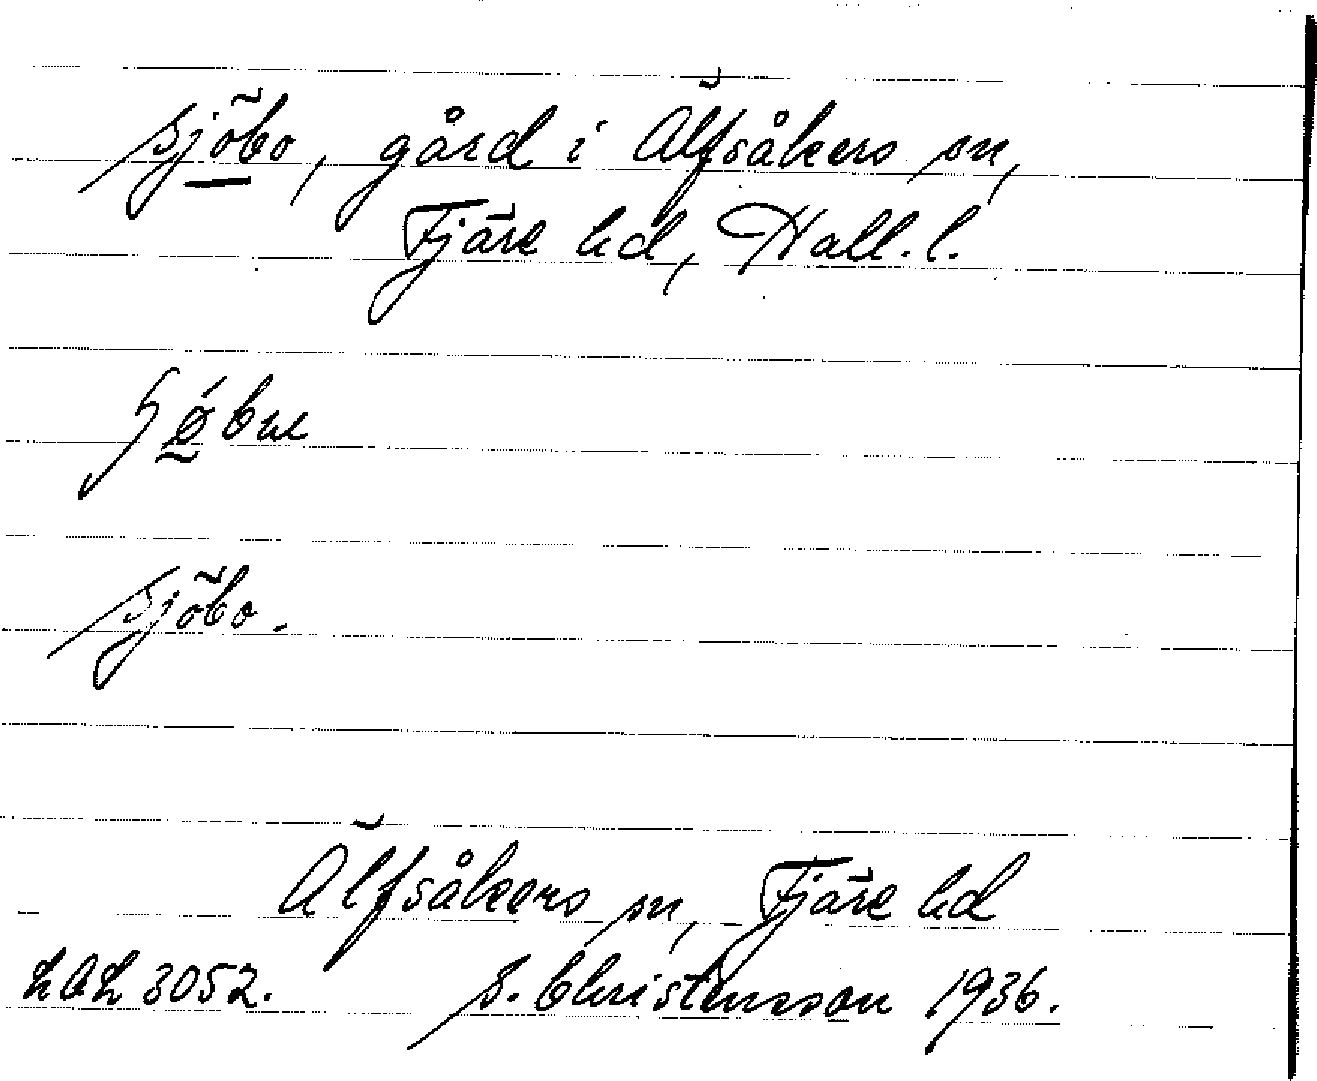 Sjöbo, gård i Älfsåkers sn,
Fjäre hd, Hall. l.
Sjöbo.
Älfsåkers sn, Fjäre hd
LAL 3052. S. Christensson 1936.